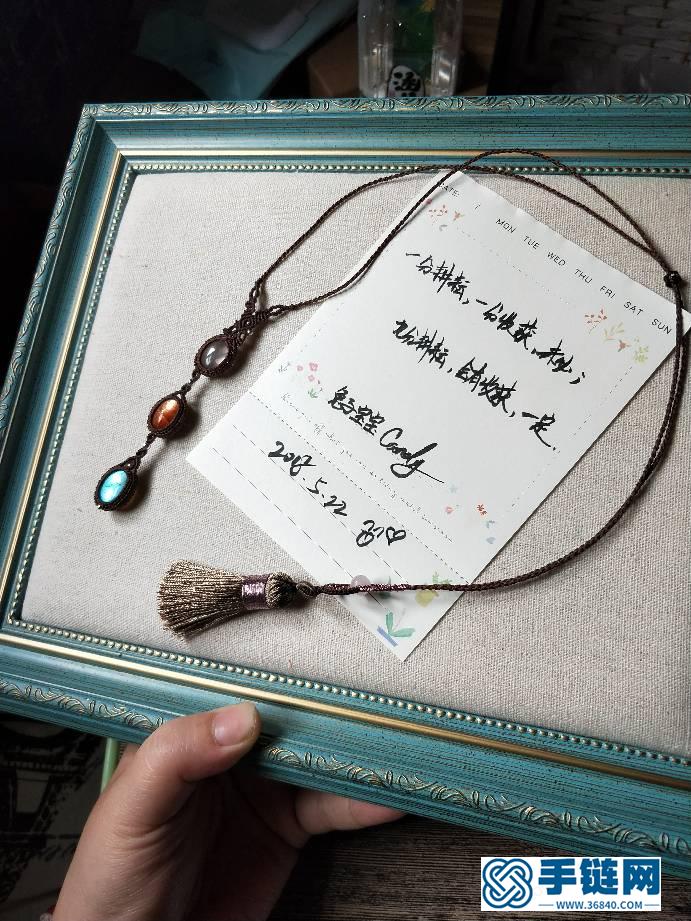 DATE: / MON TUE WED THU FRI SAT SUN
一分耕耘,一分收获,未必;
九分耕耘,会有收获,一定.
Candy
2018.5.22
手链网
www.36840.com